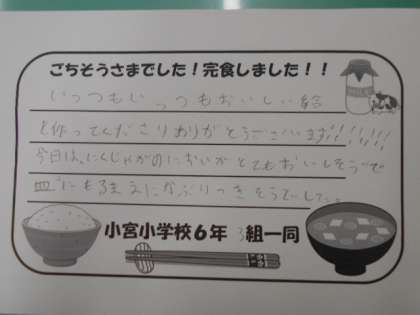 ごちそうさまでした！完食しました！！
いっつもい っつもおいしい給
を作ってくださりありがとうございます!!!!!!
今日は、にくじゃがのにおいがとてもおいしそうで
皿にもるまえにかぶりつきそうでした。
小宮小学校６年 3組一同